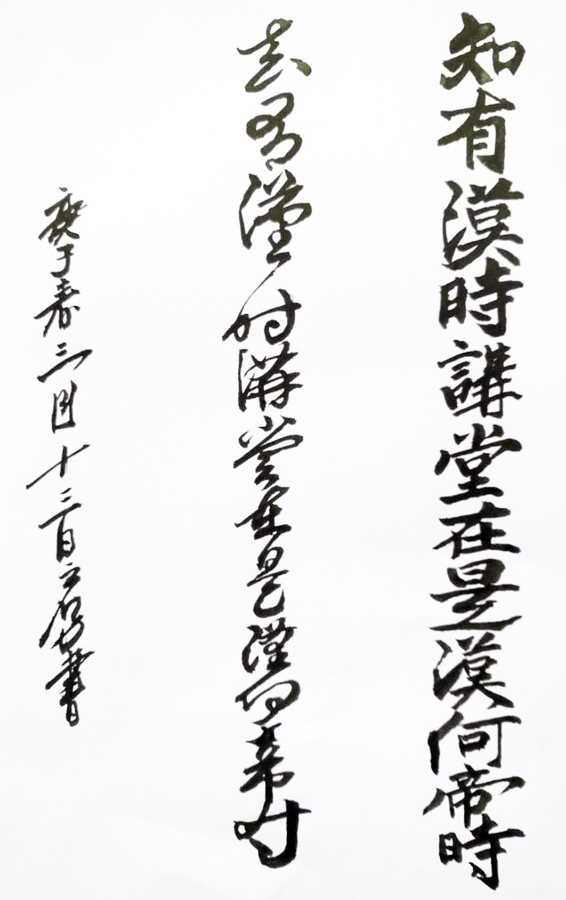 知有漢時講堂在是漢何帝時
知有漢時講堂在是漢何帝時
庚子春三月十三日書